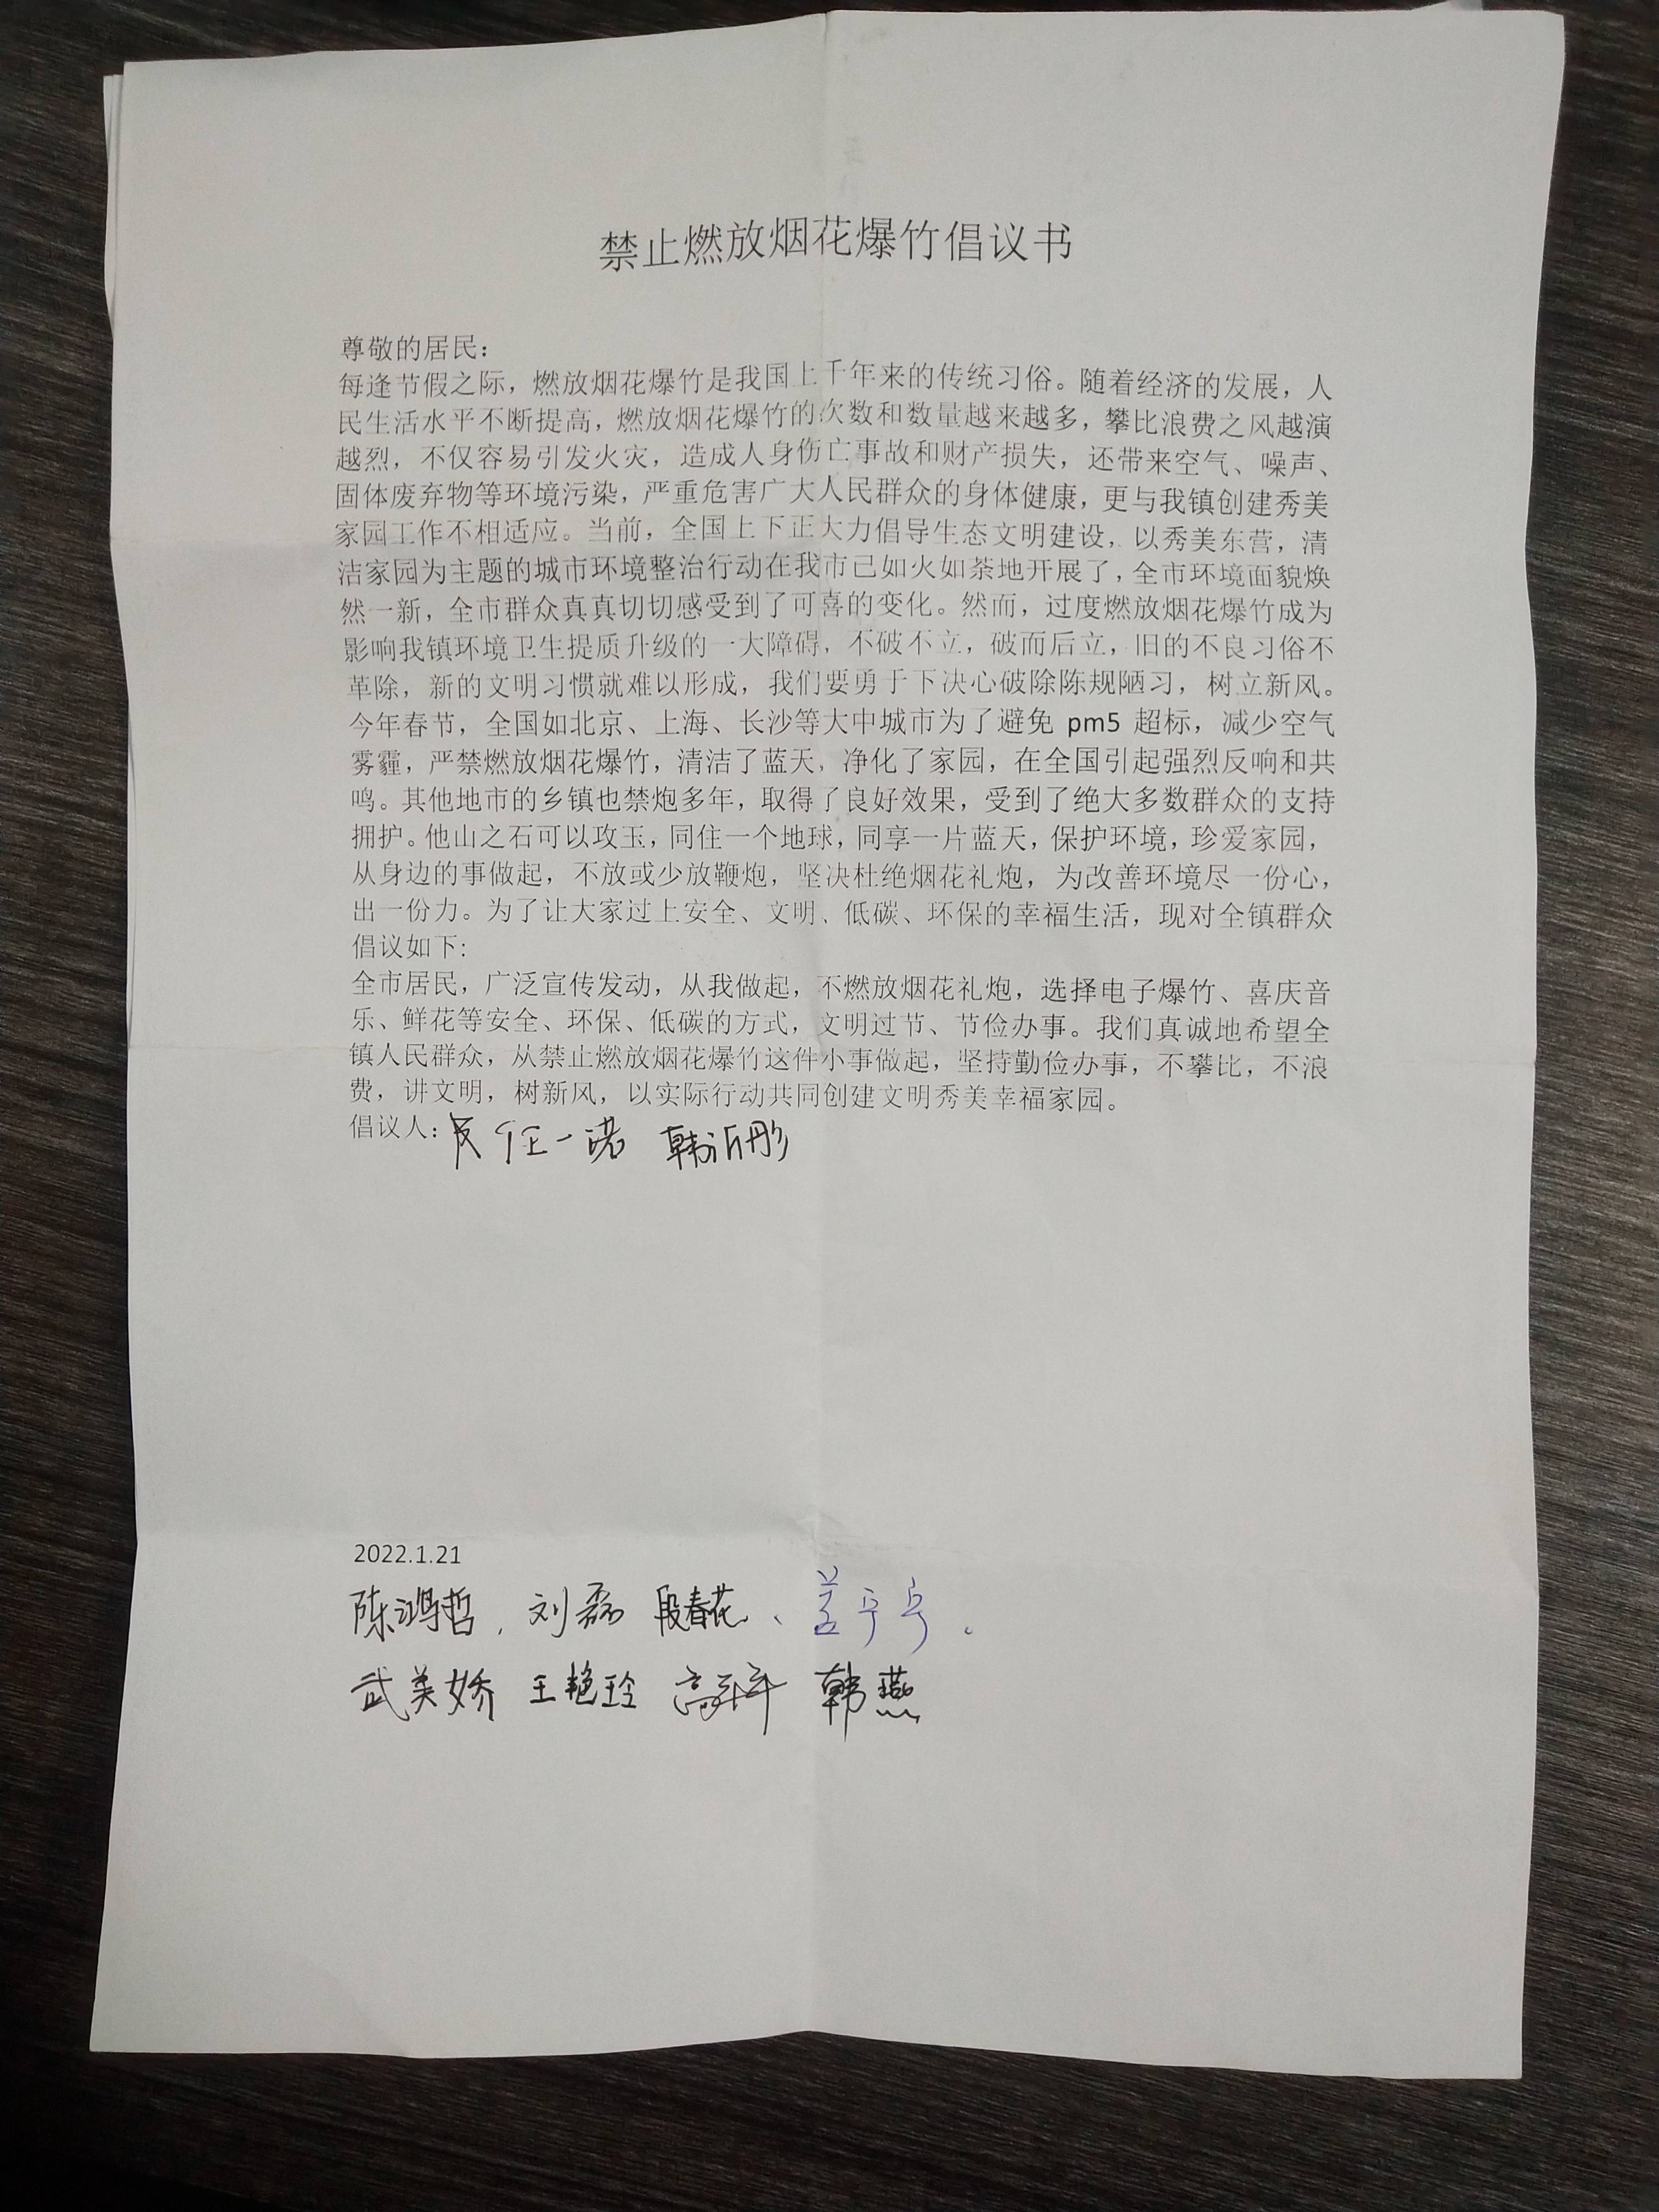 禁止燃放烟花爆竹倡议书
尊敬的居民：
每逢节假之际，燃放烟花爆竹是我国上千年来的传统习俗。随着经济的发展，人
民生活水平不断提高，燃放烟花爆竹的次数和数量越来越多，攀比浪费之风越演
越烈，不仅容易引发火灾，造成人身伤亡事故和财产损失，还带来空气、噪声、
固体废弃物等环境污染，严重危害广大人民群众的身体健康，更与我镇创建秀美
家园工作不相适应。当前，全国上下正大力倡导生态文明建设，以秀美东营，清
洁家园为主题的城市环境整治行动在我市己如火如荼地开展了，全市环境面貌焕
然一新，全市群众真真切切感受到了可喜的变化。然而，过度燃放烟花爆竹成为
影响我镇环境卫生提质升级的一大障碍，不破不立，破而后立，旧的不良习俗不
革除，新的文明习惯就难以形成，我们要勇于下决心破除陈规陋习，树立新风。
今年春节，全国如北京、上海、长沙等大中城市为了避免 pm5 超标，减少空气
雾霾，严禁燃放烟花爆竹，清洁了蓝天，净化了家园，在全国引起强烈反响和共
鸣。其他地市的乡镇也禁炮多年，取得了良好效果，受到了绝大多数群众的支持
拥护。他山之石可以攻玉，同住一个地球，同享一片蓝天，保护环境，珍爱家园，
从身边的事做起，不放或少放鞭炮，坚决杜绝烟花礼炮，为改善环境尽一份心，
出一份力。为了让大家过上安全、文明、低碳、环保的幸福生活，现对全镇群众
倡议如下:
全市居民，广泛宣传发动，从我做起，不燃放烟花礼炮，选择电子爆竹、喜庆音
乐、鲜花等安全、环保、低碳的方式，文明过节、节俭办事。我们真诚地希望全
镇人民群众，从禁止燃放烟花爆竹这件小事做起，坚持勤俭办事，不攀比，不浪
费，讲文明，树新风，以实际行动共同创建文明秀美幸福家园。
倡议人： 任一诺 韩沂彤
2022.1.21
陈鸿哲，刘磊 段春花、盖宁宁。
武美娇 王艳玲 韩燕